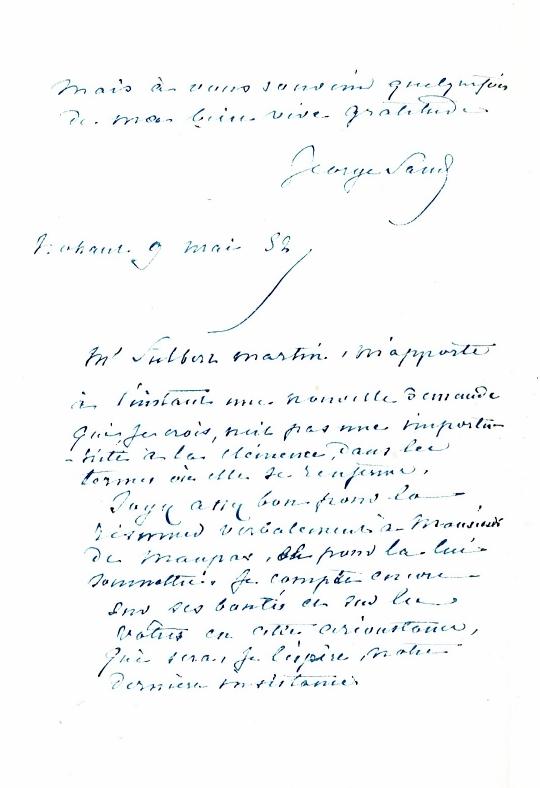 mais à vous souvenir quelquefois
de ma bien vive gratitude
George Sand
Nohant 9 mai 52
Mr Sulbert martin m'apporte
à l'instant une nouvelle demande
qui, je crois, n'est pas une importu
-nité à la clémence, dans les
termes où elle se renferme.
Soyez assez bon pour la
résumer verbalement à Monsieur
de Maupas, pour la lui
soumettre. Je compte encore
sur ses bontés et sur les
vôtres en cette circonstance,
qui sera, je l'espère, notre
dernière insistance